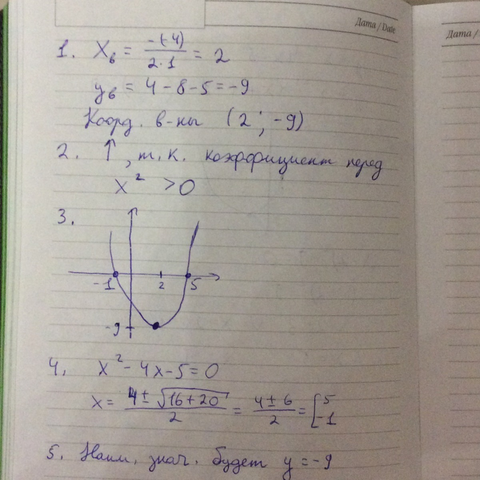 Дата / Date
Дата /
1. Xв = -(-4) / 2·1 = 2
yв = 4 - 8 - 5 = -9
Коорд. в-ны (2 ; -9)
2. ↑, т.к. коэффициент перед
x² > 0
3.
-1 2 5
-9
4. x² - 4x - 5 = 0
x = 4 ± √16+20 / 2 = 4 ± 6 / 2 = [ 5 -1
5. Наим. знач. будет y = -9